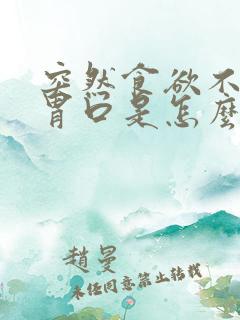 突然食欲不
胃口是怎麼
趙曼
未任同意禁止转载